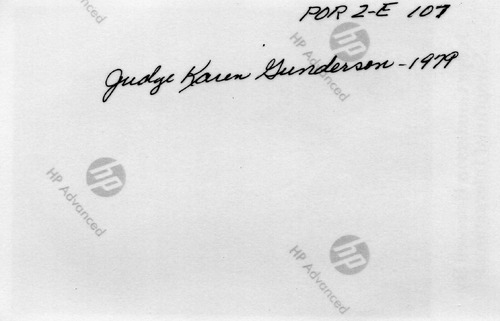 POR 2-E 107
Judge Karen Gunderson - 1979
hp
HP Advanced
hp
HP Advanced
hp
HP Advanced